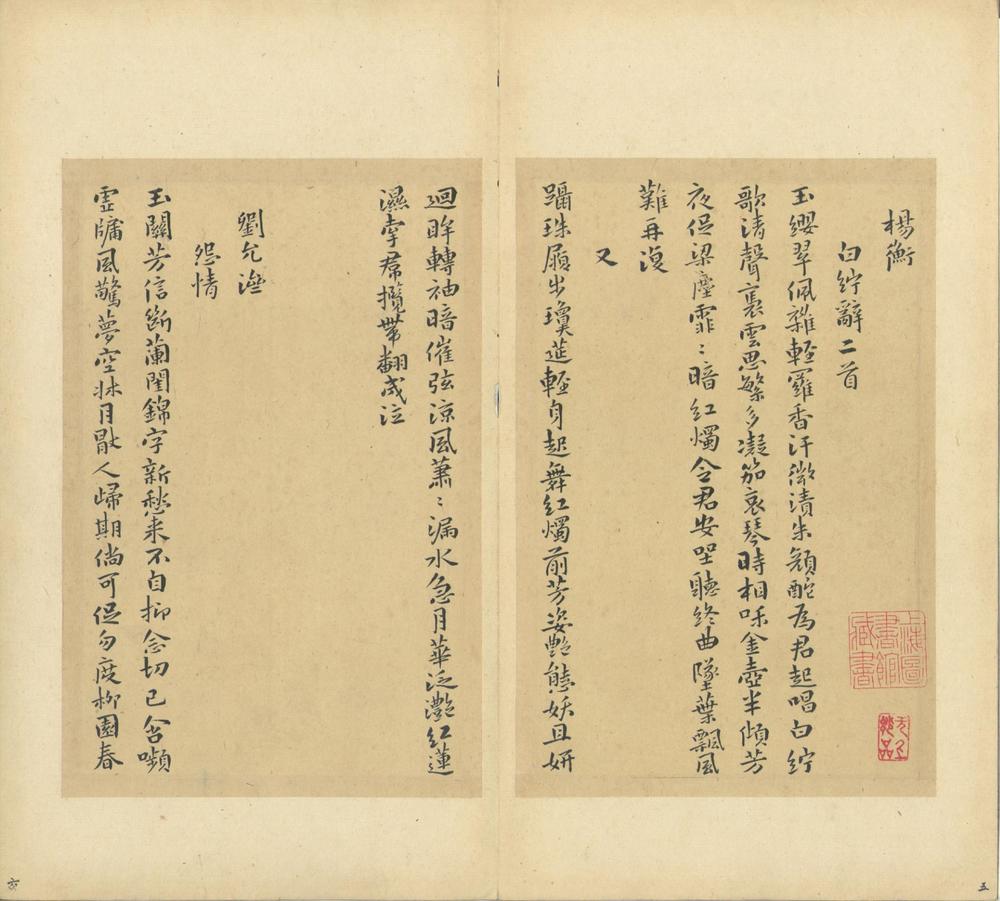 楊衡
白紵辭二首
玉纓翠佩雜輕羅香汗微漬朱顏酡為君起唱白紵
歌清聲裏雲思繁多凝笳哀琴時相和金壺半傾芳
夜促梁塵霏〻暗紅燭令君安坐聽終曲墜葉飄風
難再復
又
躡珠履步瓊筵輕身起舞紅燭前芳姿艷態妖且妍
迴眸轉袖暗催弦涼風蕭〻漏水急月華泛灩紅蓮
濕牽裙攬帶翻成泣
劉允濟
怨情
玉關芳信斷蘭閨錦字新愁來不自抑念切已含嚬
虛牖風驚夢空牀月厭人歸期倘可促勿度柳園春
上海圖
書館
藏書
五
六